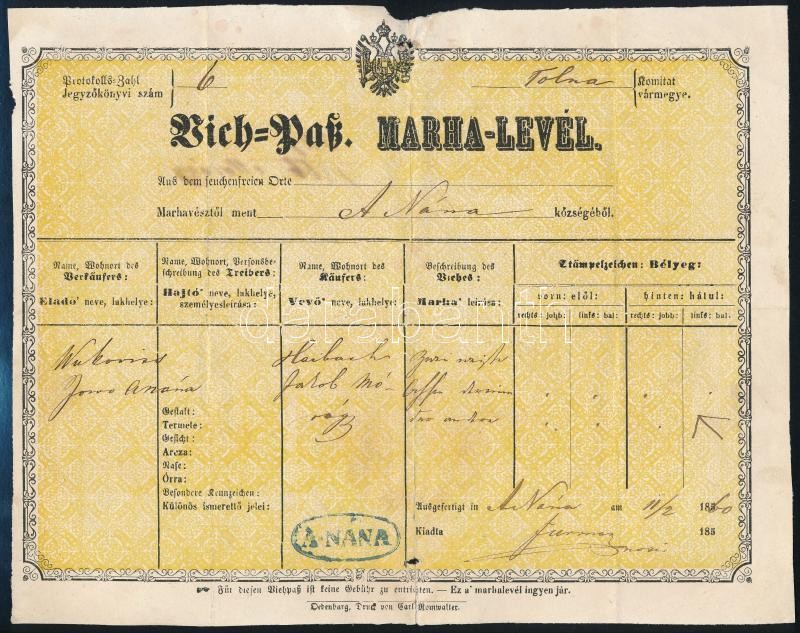 Protokolls-Zahl 6 Tolna Komitat
Jegyzőkönyvi szám vármegye.
Vieh=Paß. MARHA-LEVÉL.
Aus dem seuchenfreien Orte
Marhavésztől ment A Nána községéből.
Name, Wohnort des Verkäufers:
Eladó' neve, lakhelye:
Name, Wohnort, Personsbe-
schreibung des Treibers:
Hajtó' neve, lakhelye,
személyesleirása:
Name, Wohnort des
Käufers:
Vevő' neve, lakhelye:
Beschreibung des
Viehes:
Marha' leirása:
Stämpelzeichen: Bélyeg:
vorn: elől: hinten: hátul:
rechts: jobb: links: bal: rechts: jobb: links: bal:
darabanth
Jakob Mó-
Gestalt:
Termete:
Gesicht:
Arcza:
Nase:
Órra:
Besondere Kennzeichen:
Különös ismerettő jelei:
A·NÁNA
Ausgefertigt in A Nána am 11/2 1860
Kiadta 185
Für diesen Viehpaß ist keine Gebühr zu entrichten. — Ez a' marhalevél ingyen jár.
Oedenburg, Druck von Carl Romwalter.